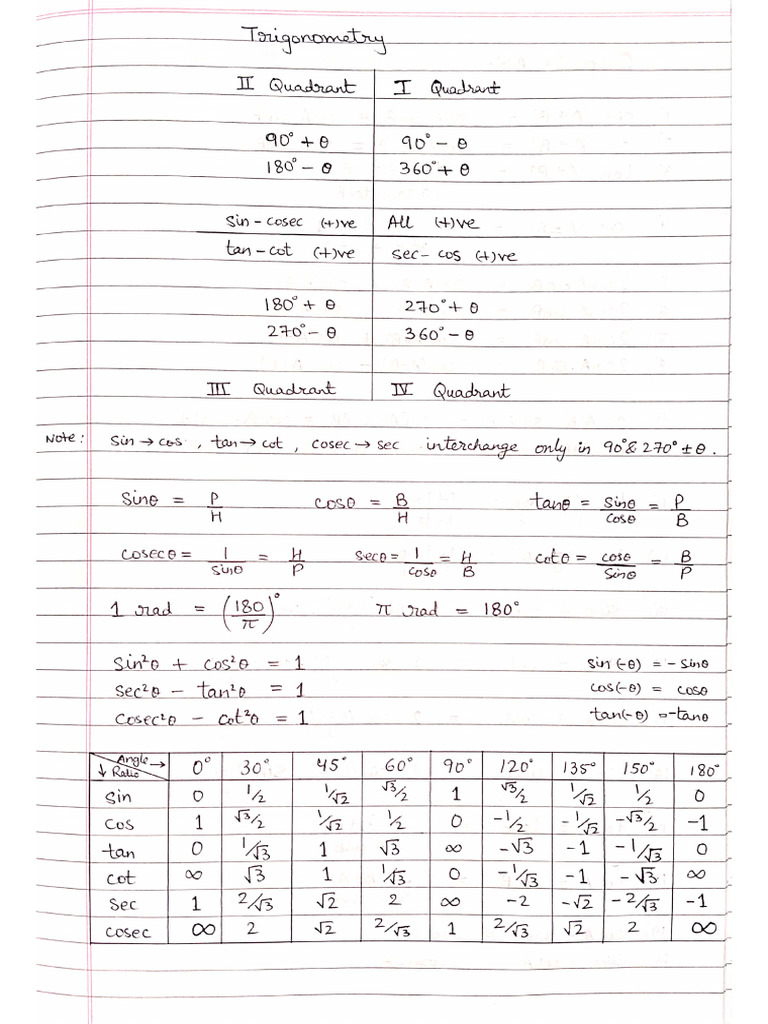 Trigonometry
II Quadrant I Quadrant
90° + θ 90° - θ
180° - θ 360° + θ
sin - cosec (+)ve All (+)ve
tan - cot (+)ve sec - cos (+)ve
180° + θ 270° + θ
270° - θ 360° - θ
III Quadrant IV Quadrant
Note: sin → cos , tan → cot , cosec → sec interchange only in 90° & 270° ± θ.
sinθ = P/H cosθ = B/H tanθ = sinθ/cosθ = P/B
cosecθ = 1/sinθ = H/P secθ = 1/cosθ = H/B cotθ = cosθ/sinθ = B/P
1 rad = (180/π)° π rad = 180°
sin²θ + cos²θ = 1 sin(-θ) = - sinθ
sec²θ - tan²θ = 1 cos(-θ) = cosθ
cosec²θ - cot²θ = 1 tan(-θ) = -tanθ
Angle → ↓ Ratio 0° 30° 45° 60° 90° 120° 135° 150° 180°
sin 0 1/2 1/√2 √3/2 1 √3/2 1/√2 1/2 0
cos 1 √3/2 1/√2 1/2 0 -1/2 -1/√2 -√3/2 -1
tan 0 1/√3 1 √3 ∞ -√3 -1 -1/√3 0
cot ∞ √3 1 1/√3 0 -1/√3 -1 -√3 ∞
sec 1 2/√3 √2 2 ∞ -2 -√2 -2/√3 -1
cosec ∞ 2 √2 2/√3 1 2/√3 √2 2 ∞